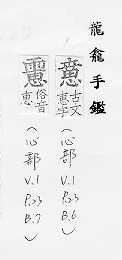 龍龕手鑑
古文
惠字
(心部 V.1 B.6)
俗音
惠
(心部 V.1 B.7)